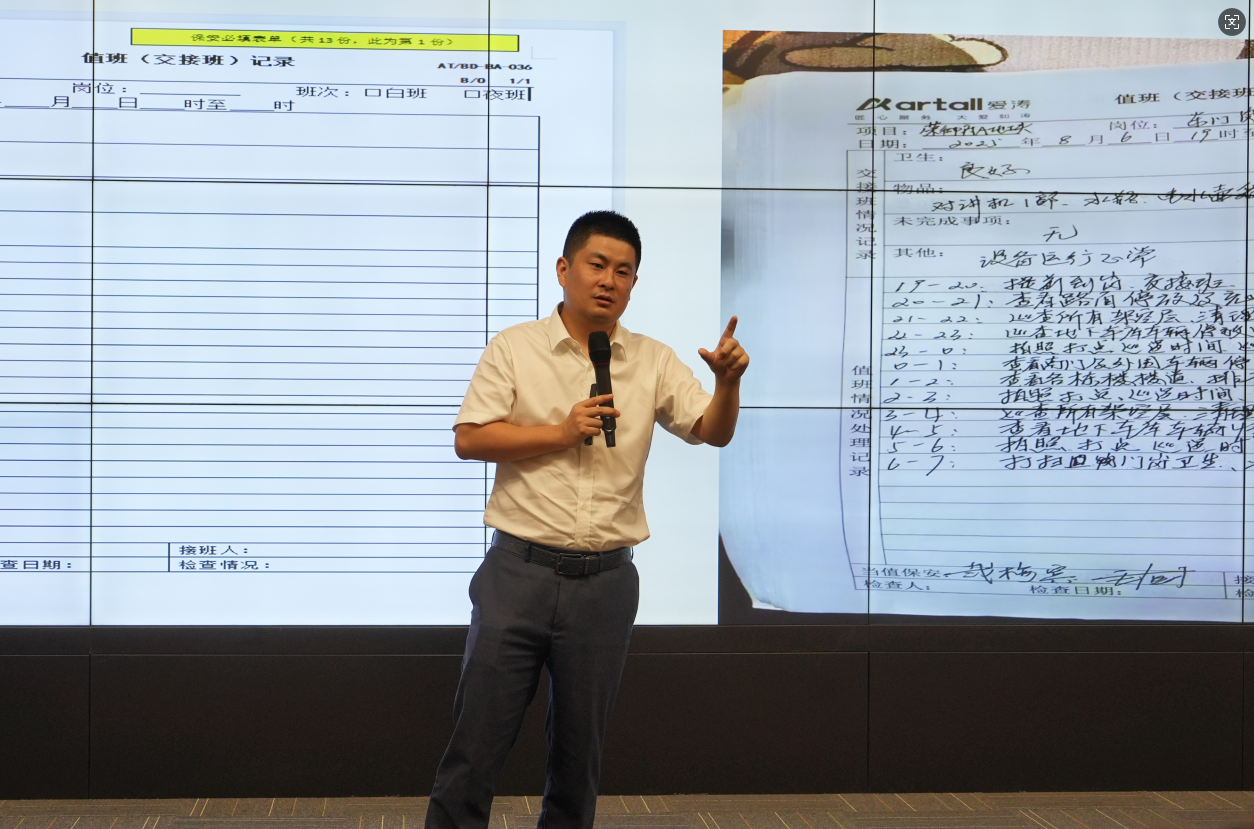 保安必填表单（共13份，此为第1份）
值班（交接班）记录
AT/BD-BA-036
B/0 1/1
岗位：
班次：口白班 口夜班
月 日 时至 时
接班人：
查日期：
检查情况：
artall 爱涛
匠心服务 大爱如涛
值班（交接班
项目：
岗位：
日期：2025年8月6日19时至
交接班情况记录
卫生：
良好
物品：
对讲机1部、
未完成事项：
无
其他：
设备运行正常
值班情况处理记录
19-20：提前到岗.交接班.
20-21：查看路面停放
21-22：巡查所有架空层.清理
22-23：巡查地下车库车辆停放
23-0：拍照打点巡逻时间
0-1：查看南门及外围车辆停
1-2：查看各栋楼楼道.
2-3：拍照打点、巡逻时间、
3-4：巡查所有架空层.清理
4-5：查看地下车库车辆
5-6：拍照.打点.巡逻时
6-7：打扫 门岗卫生、
当值保安
检查人：
检查日期：
接
检